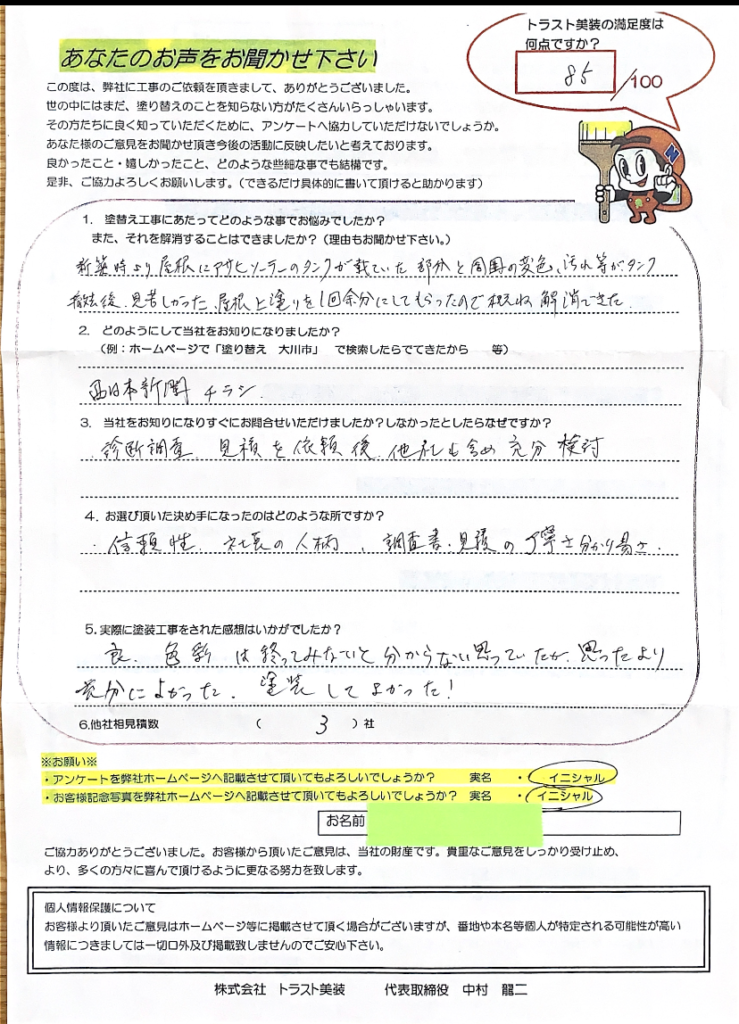 トラスト美装の満足度は
何点ですか?
85/100
あなたのお声をお聞かせ下さい
この度は、弊社に工事のご依頼を頂きまして、ありがとうございました。
世の中にはまだ、塗り替えのことを知らない方がたくさんいらっしゃいます。
その方たちに良く知っていただくために、アンケートへ協力していただけないでしょうか。
あなた様のご意見をお聞かせ頂き今後の活動に反映したいと考えております。
良かったこと・嬉しかったこと、どのような些細な事でも結構です。
是非、ご協力よろしくお願いします。(できるだけ具体的に書いて頂けると助かります)
1. 塗替え工事にあたってどのような事でお悩みでしたか?
また、それを解消することはできましたか?(理由もお聞かせ下さい。)
新築時より屋根にアサヒソーラーのタンクが載ていた 部分と周囲の変色、汚れ等がタンク
撤去後、見苦しかった、屋根上塗りを1回余分にしてもらったので 解消できた
2. どのようにして当社をお知りになりましたか?
(例:ホームページで「塗り替え 大川市」 で検索したらでてきたから 等)
西日本新聞 チラシ
3. 当社をお知りになりすぐにお問合せいただけましたか?しなかったとしたらなぜですか?
診断調査、見積を依頼後、他社も含め 充分 検討
4. お選び頂いた決め手になったのはどのような所ですか?
・信頼性、社長の人柄、調査書・見積の丁寧さ分かり易さ.
5. 実際に塗装工事をされた感想はいかがでしたか?
良、色彩は終ってみないと分からない思っていたが、思ったより
充分によかった、塗装してよかった!
6.他社相見積数 ( 3 )社
※お願い※
・アンケートを弊社ホームページへ記載させて頂いてもよろしいでしょうか? 実名 ・ イニシャル
・お客様記念写真を弊社ホームページへ記載させて頂いてもよろしいでしょうか? 実名 ・ イニシャル
お名前
ご協力ありがとうございました。お客様から頂いたご意見は、当社の財産です。貴重なご意見をしっかり受け止め、
より、多くの方々に喜んで頂けるように更なる努力を致します。
個人情報保護について
お客様より頂いたご意見はホームページ等に掲載させて頂く場合がございますが、番地や本名等個人が特定される可能性が高い
情報につきましては一切口外及び掲載致しませんのでご安心下さい。
株式会社 トラスト美装 代表取締役 中村 龍二